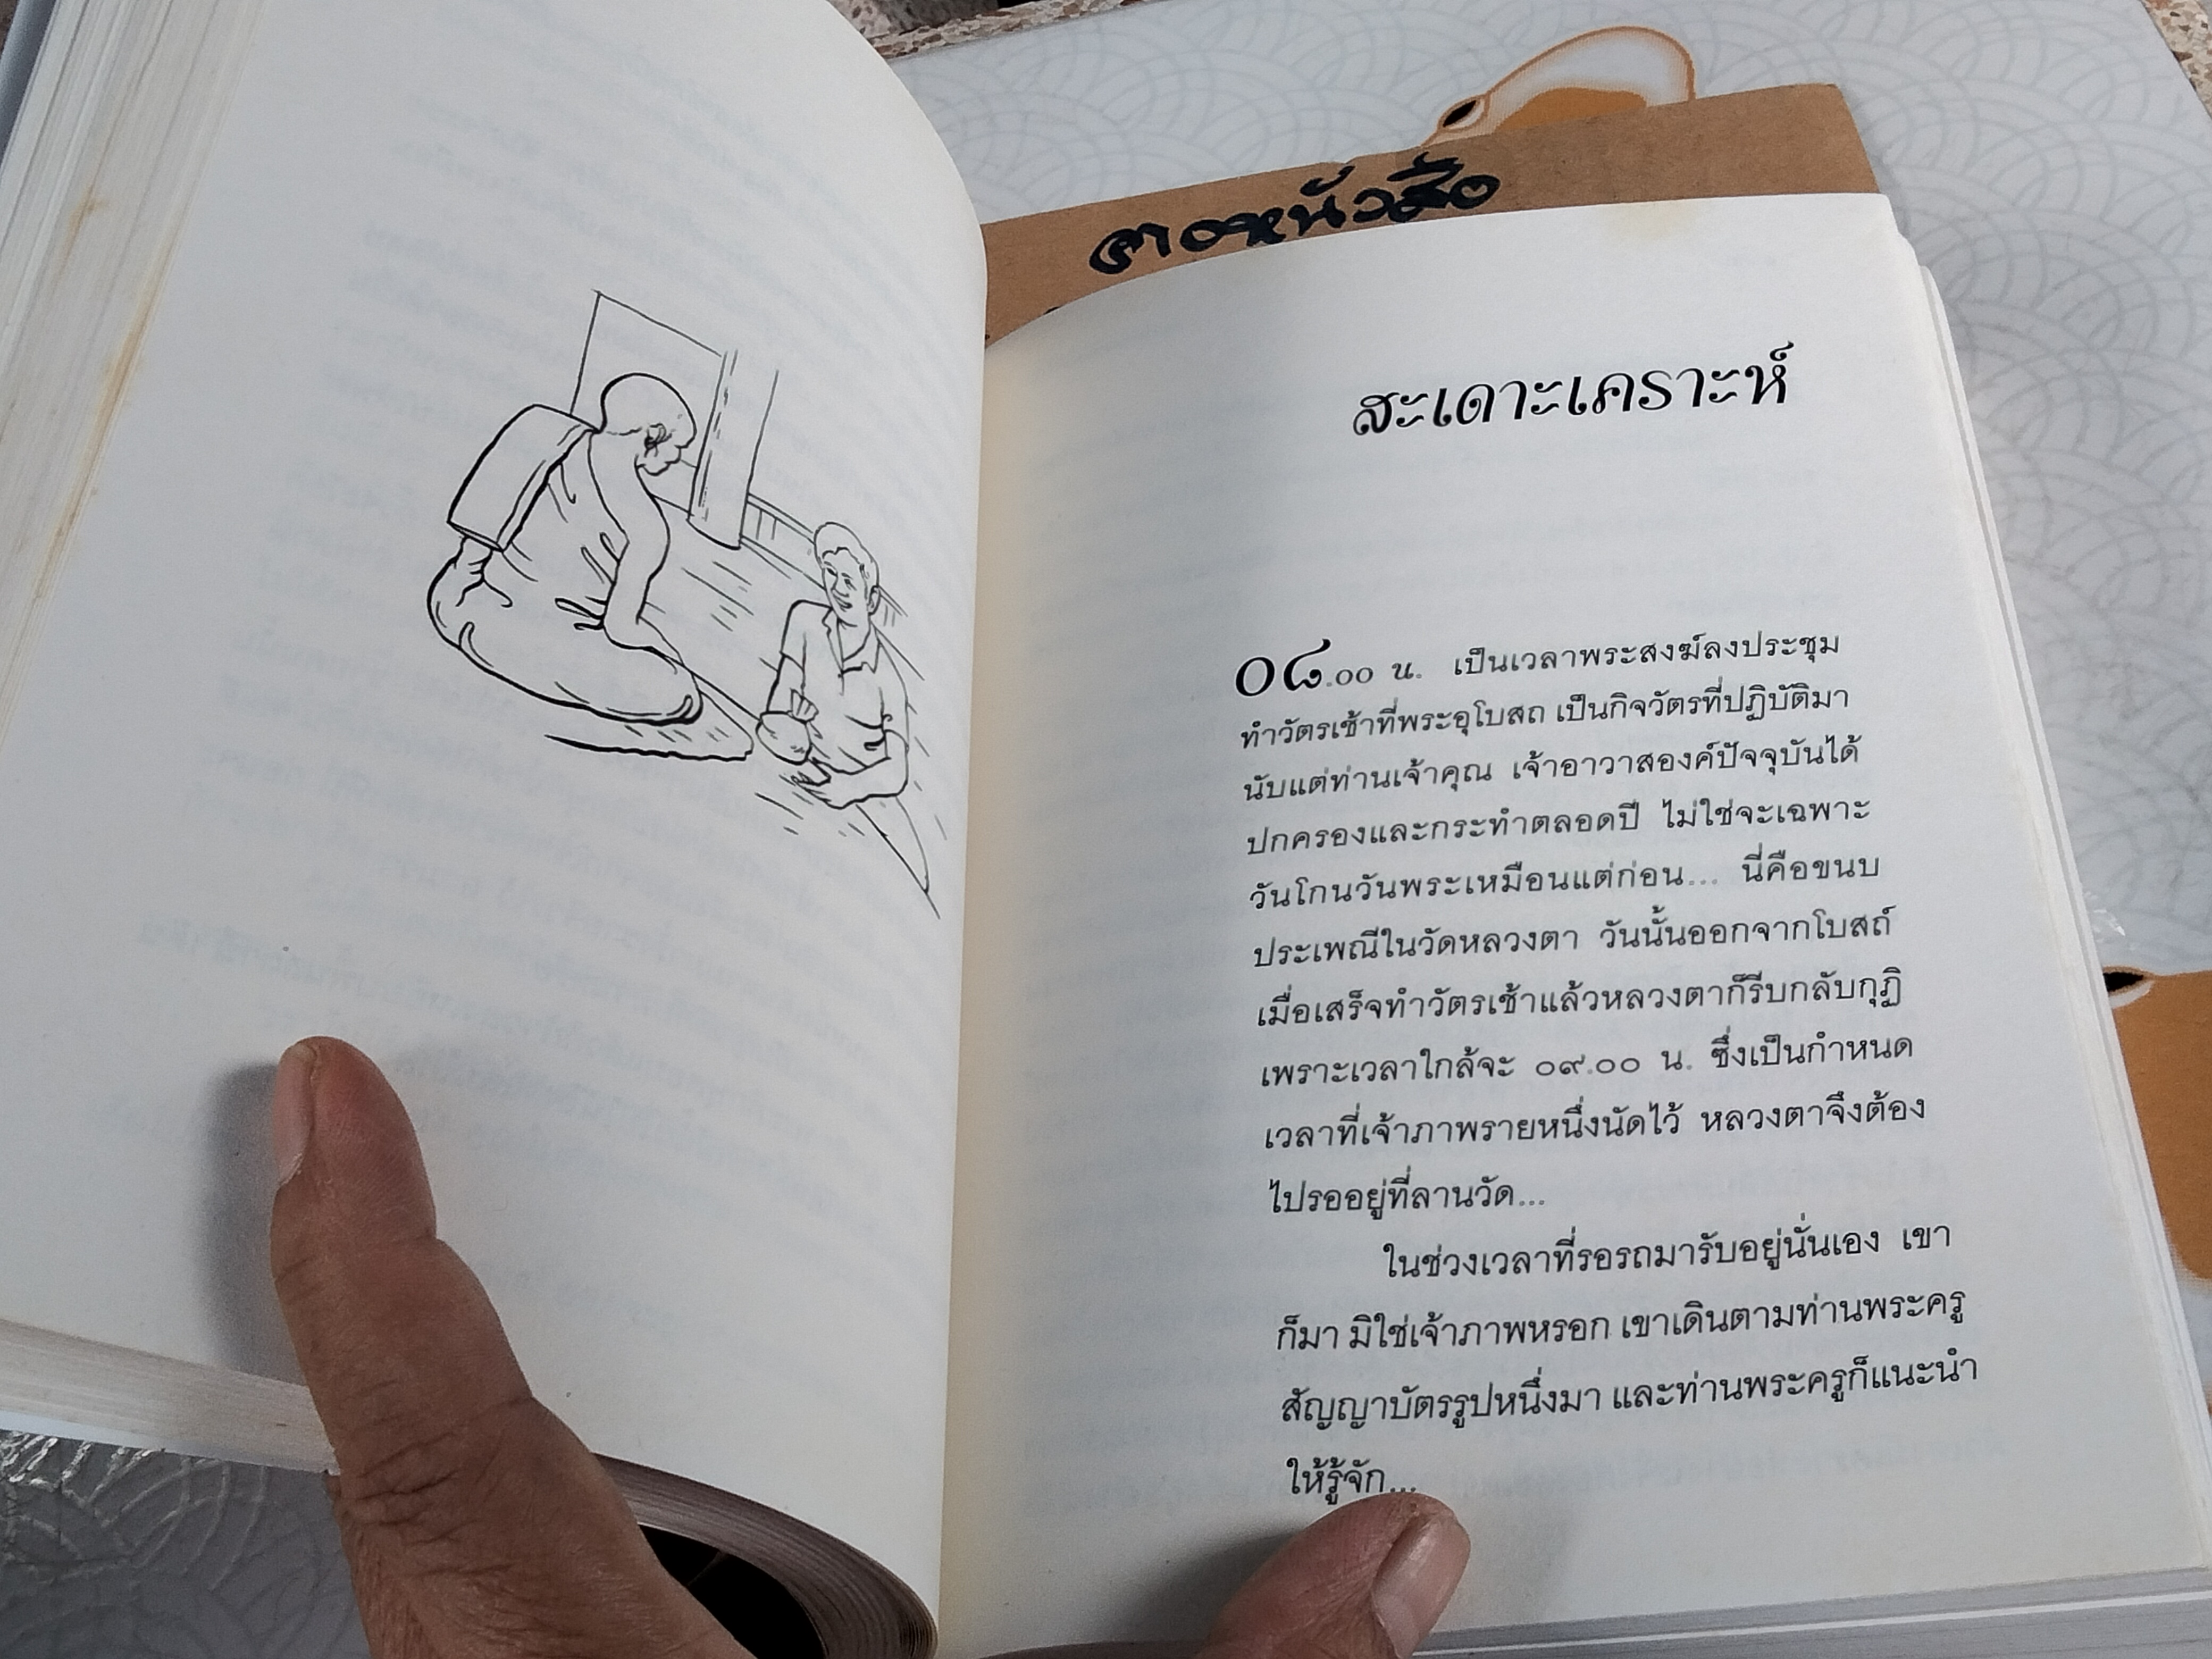 ตอหนังสือ
สะเดาะเคราะห์
๐๘.๐๐ น. เป็นเวลาพระสงฆ์ลงประชุม
ทำวัตรเช้าที่พระอุโบสถ เป็นกิจวัตรที่ปฏิบัติมา
นับแต่ท่านเจ้าคุณ เจ้าอาวาสองค์ปัจจุบันได้
ปกครองและกระทำตลอดปี ไม่ใช่จะเฉพาะ
วันโกนวันพระเหมือนแต่ก่อน... นี่คือขนบ
ประเพณีในวัดหลวงตา วันนั้นออกจากโบสถ์
เมื่อเสร็จทำวัตรเช้าแล้วหลวงตาก็รีบกลับกุฏิ
เพราะเวลาใกล้จะ ๐๙.๐๐ น. ซึ่งเป็นกำหนด
เวลาที่เจ้าภาพรายหนึ่งนัดไว้ หลวงตาจึงต้อง
ไปรออยู่ที่ลานวัด...
ในช่วงเวลาที่รอรถมารับอยู่นั่นเอง เขา
ก็มา มิใช่เจ้าภาพหรอก เขาเดินตามท่านพระครู
สัญญาบัตรรูปหนึ่งมา และท่านพระครูก็แนะนำ
ให้รู้จัก...